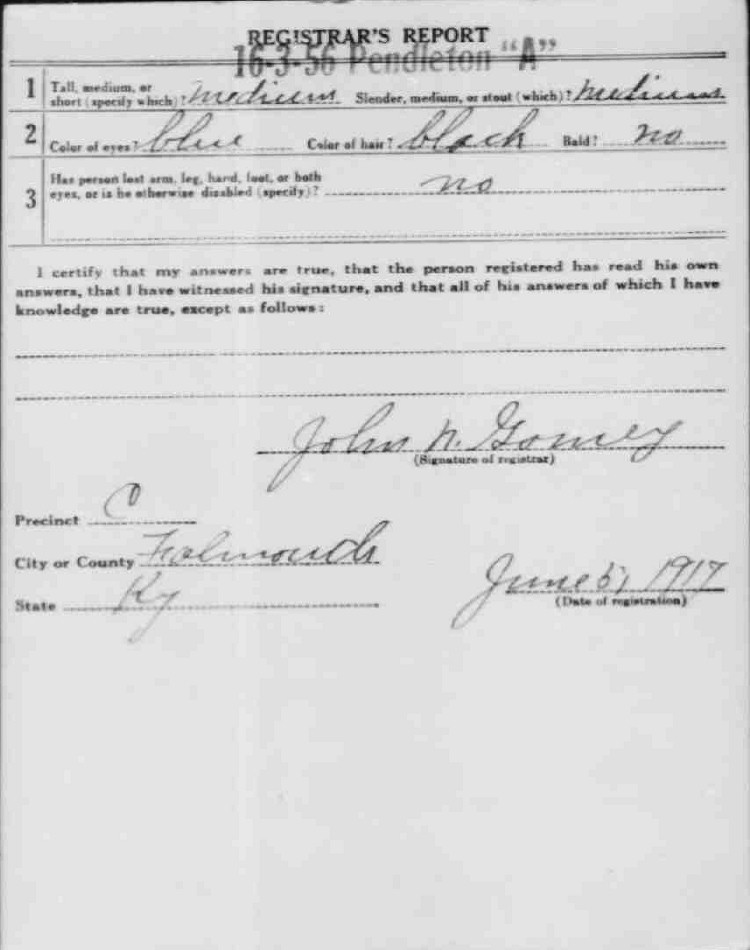 REGISTRAR'S REPORT
16-3-56 Pendleton "A"
1 Tall, medium, or short (specify which)? medium Slender, medium, or stout (which)? medium
2 Color of eyes? blue Color of hair? black Bald? no
3 Has person lost arm, leg, hand, foot, or both
eyes, or is he otherwise disabled (specify)? no
I certify that my answers are true, that the person registered has read his own
answers, that I have witnessed his signature, and that all of his answers of which I have
knowledge are true, except as follows:
John N.
(Signature of registrar)
Precinct C
City or County Falmouth
State Ky
June 5, 1917
(Date of registration)